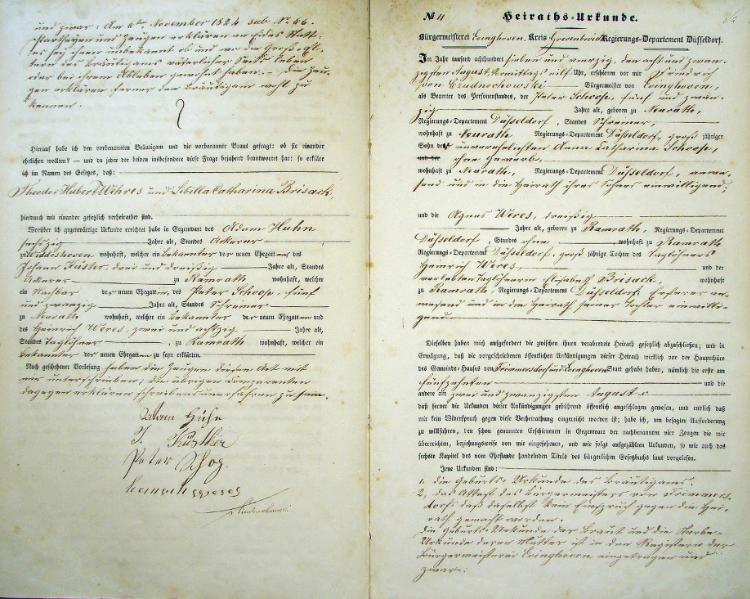 und zwar: Am 6t November 1824 sub No 66.
kennen.
Hierauf habe ich den vorbenannten Bräutigam und die vorbenannte Braut gefragt: ob sie einander
ehelichen wollten? — und da jeder der beiden insbesondere diese Frage bejahend beantwortet hat: so erkläre
ich im Namen des Gesetzes, daß:
Theodor Hubert Wehres und Sibilla Catharina Brisack,
hierdurch mit einander gesetzlich verheirathet sind.
Worüber ich gegenwärtige Urkunde errichtet habe in Gegenwart des Adam Huhn
sechszig Jahre alt, Standes Ackerer
wohnhaft, welcher ein Bekannter der neuen Ehegatten des
Johann Küster, drei und dreißig Jahre alt, Standes
Ackerer zu Ramrath wohnhaft, welcher
ein Nachbar der neuen Ehegatten, des Peter Schoog, fünf
und zwanzig Jahre alt, Standes Schreiner
zu Neurath wohnhaft, welcher ein Bekannter der neuen Ehegatten und
des Heinrich Wéres, zwei und achtzig Jahre alt,
Standes Taglöhner, zu Ramrath wohnhaft, welcher ein
Bekannter der neuen Ehegatten zu sein erklärten.
Nach geschehener Vorlesung haben die Zeugen diesen Act mit
mir unterschrieben, die übrigen Comparenten
dagegen erklären Schreibens unerfahren zu sein.
J. Küsther
Peter Schog
No 11 Heiraths-Urkunde.
Bürgermeisterei Evinghoven, Kreis Grevenbroich Regierungs-Departement Düsseldorf.
Im Jahr tausend achthundert sieben und vierzig, den acht und zwan-
zigsten August, Vormittags elf Uhr, erschienen vor mir Friedrich
von Czudnochowski Bürgermeister von Evinghoven,
als Beamten des Personenstandes, der Peter Schoog, fünf und zwan-
zig Jahre alt, geboren zu Neurath,
Regierungs-Departement Düsseldorf, Standes Schreiner,
wohnhaft zu Neurath Regierungs-Departement Düsseldorf, groß jähriger
Sohn der unverehelichten Anna Catharina Schoog,
ohne Gewerb,
zu Neurath, Regierungs-Departement Düsseldorf, anwe-
send und in die Heirath ihres Sohnes einwilligend;
und die Agnes Wéres, dreißig
Jahre alt, geboren zu Ramrath, Regierungs-Departement
Düsseldorf, Standes ohne wohnhaft zu Ramrath
Regierungs-Departement Düsseldorf, groß jährige Tochter des Taglöhners
Heinrich Wéres und der
verlebten Elisabeth Brisack, wohnhaft
zu Ramrath, Regierungs-Departement Düsseldorf, ersterer an-
wesend und in die Heirath seiner Tochter einwilli-
gend
Dieselben haben mich aufgefordert die zwischen ihnen verabredete Heirath gesetzlich abzuschließen; und in
Erwägung, daß die vorgeschriebenen öffentlichen Ankündigungen dieser Heirath wirklich vor der Hauptthüre
des Gemeinde-Hauses von Frimmersdorf und Evinghoven Statt gehabt haben, nämlich die erste am
fünfzehnten und die
andere am zwei und zwanzigsten August c
daß ferner die Urkunden dieser Ankündigungen gebührend öffentlich angeschlagen gewesen, und endlich daß
mir kein Widerspruch gegen diese Verheirathung eingereicht worden ist; habe ich, um besagter Aufforderung
zu willfahren, den schon genannten Erschienenen in Gegenwart der nachbenannten vier Zeugen die mir
überreichten, beziehungsweise von mir eingesehenen, und wie folgt aufgezählten Urkunden, so wie auch das
sechste Kapitel des vom Ehestande handelnden Titels des bürgerlichen Gesetzbuchs laut vorgelesen.
Jene Urkunden sind:
1, die Geburts-Urkunde des Bräutigams.
2, das Attest des Bürgermeisters von Frimmers-
dorf daß daselbst kein Einspruch gegen die Hei-
rath gemacht worden.
Die Geburts-Urkunde der Braut und die Sterbe-
Urkunde deren Mutter ist in den Registern der
Bürgermeisterei Evinghoven eingetragen und
zwar: